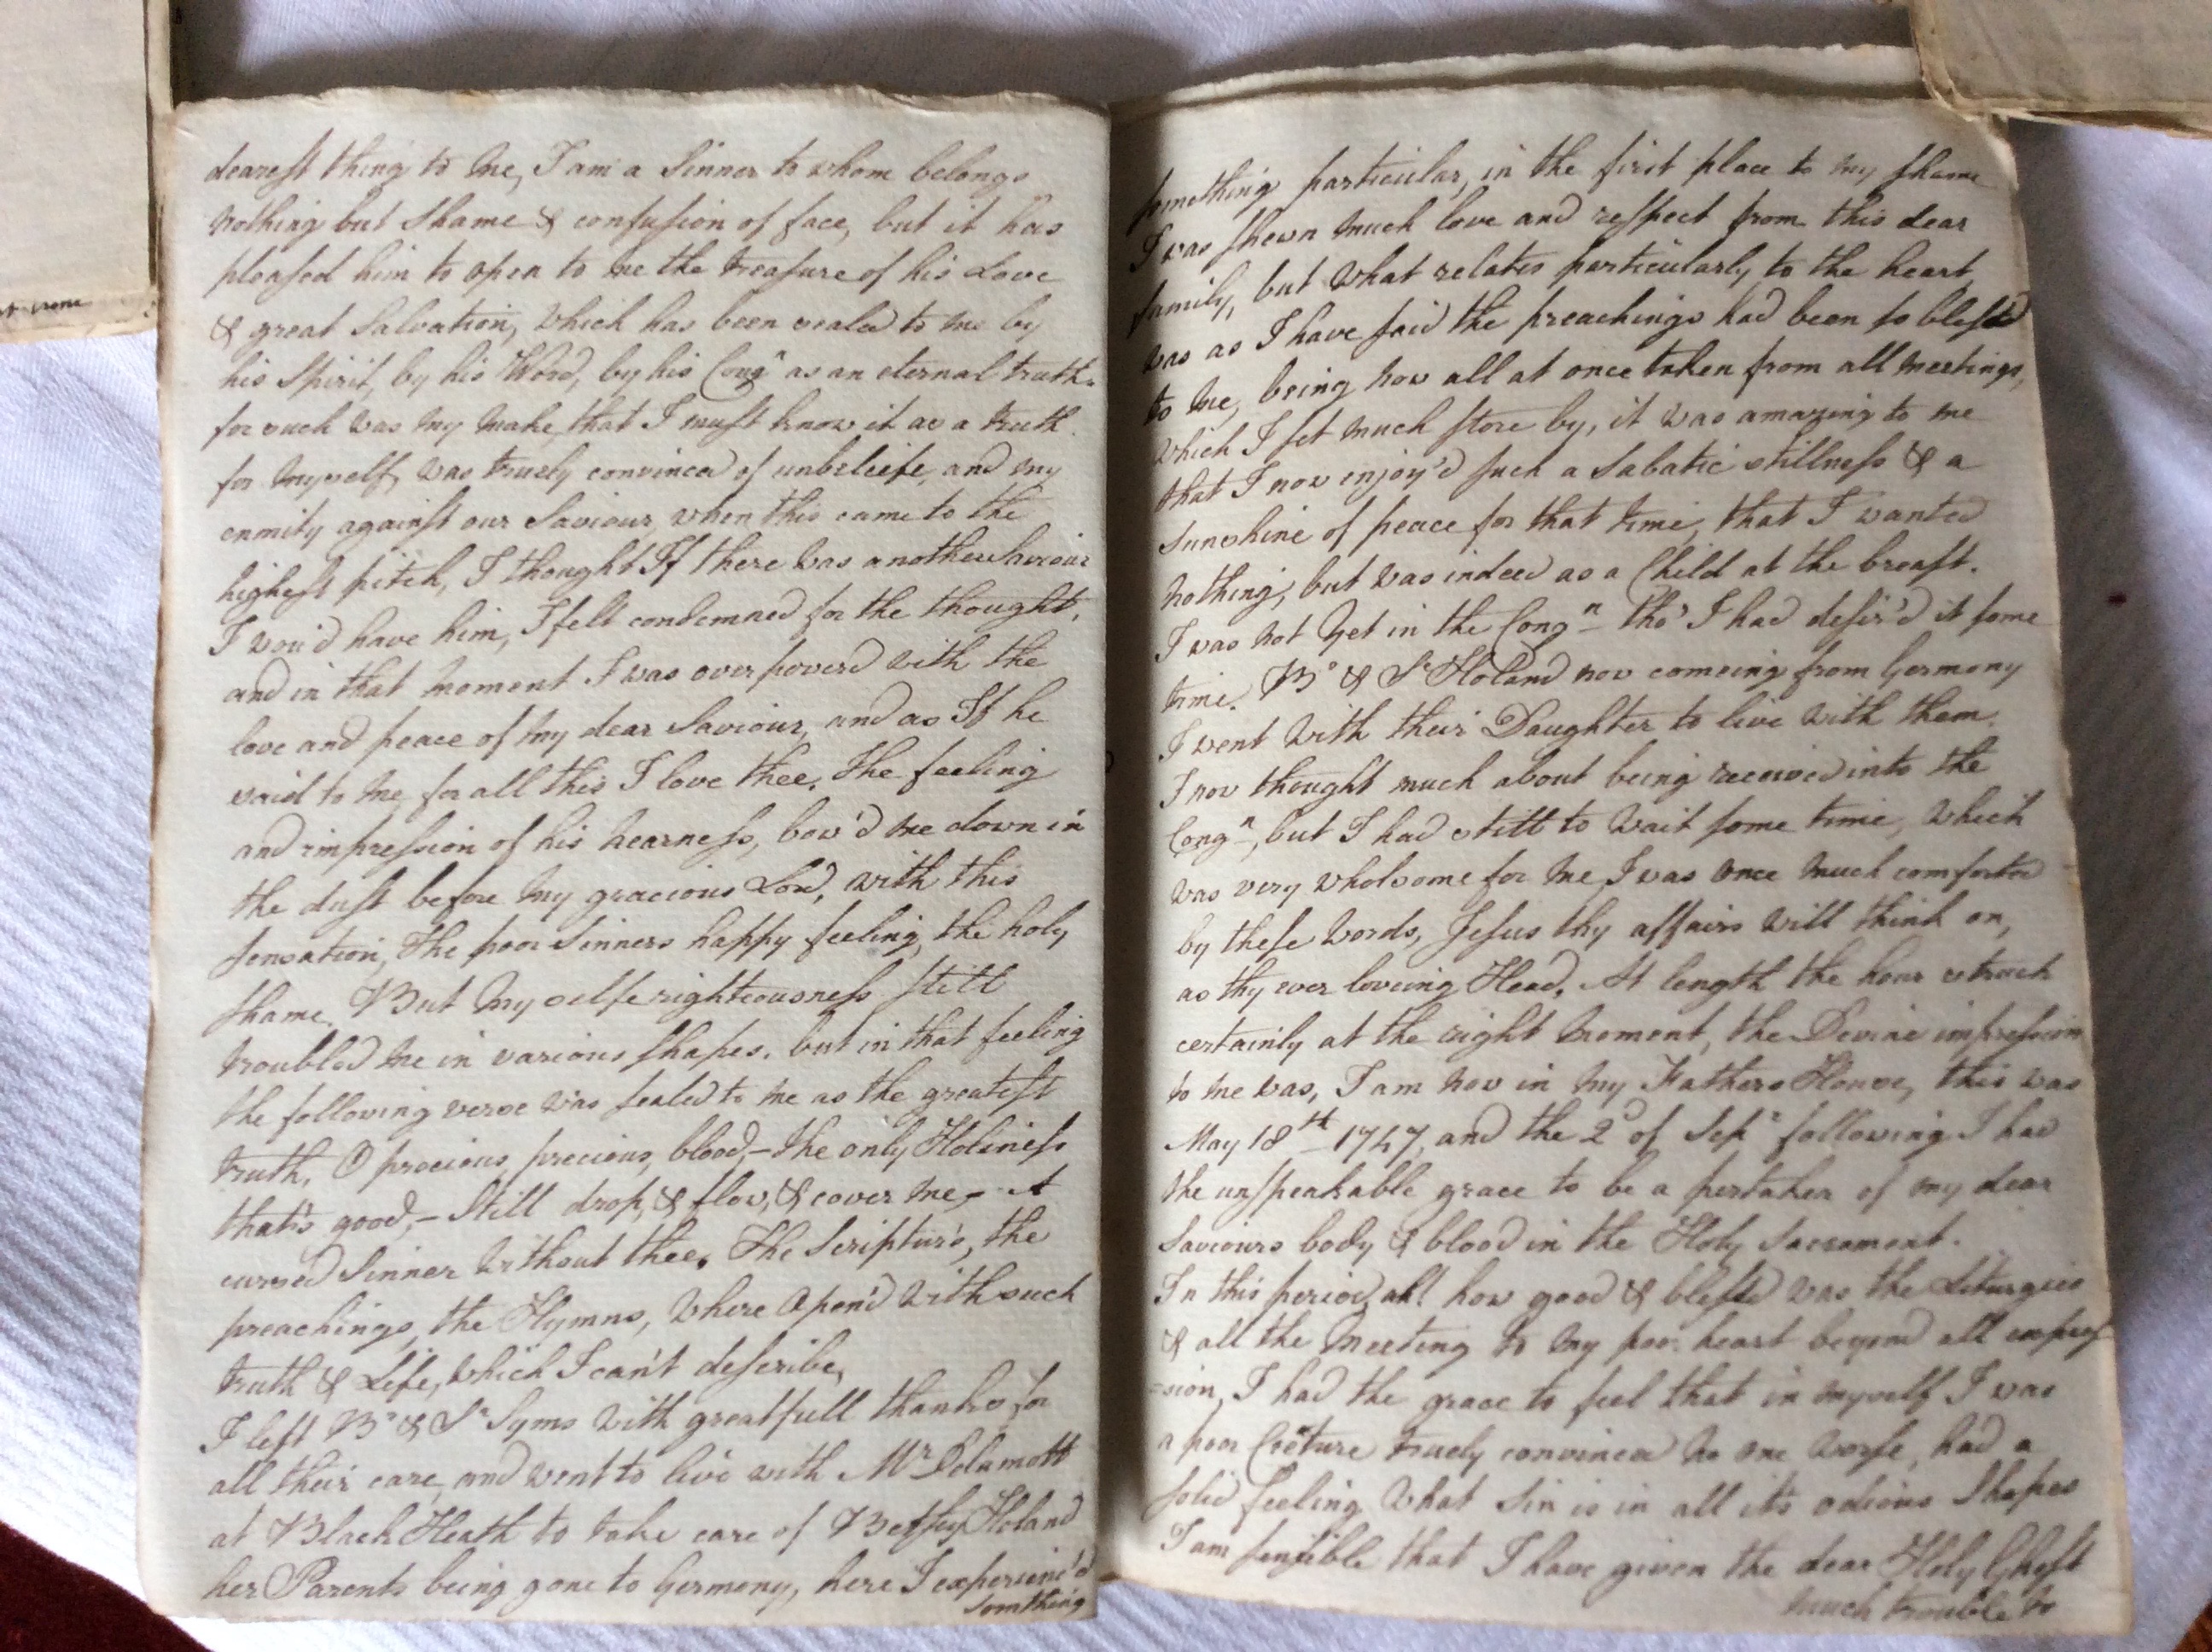 dearest thing to me, I am a Sinner to whom belongs
nothing but Shame & confusion of face, but it has
pleased him to open to me the treasure of his Love
& great Salvation, Which has been sealed to me by
his Spirit, by his Word, by his Congn as an eternal truth.
for such was my make, that I must know it as a truth
for myself, was truely convinced of unbeliefe, and my
enmity against our Saviour, when this came to the
highest pitch, I thought If there was another Saviour
I wou'd have him, I felt condemned for the thought,
and in that moment I was overpowerd with the
love and peace of my dear Saviour, and as If he
said to me, for all this I love thee. The feeling
and impression of his nearness, bow'd me down in
the dust before my gracious Lord, with this
sensation, The poor Sinners happy feeling, the holy
shame. But my selfe righteousness still
troubled me in various shapes. but in that feeling
the following verse was sealed to me as the greatest
truth. O precious, precious, blood, – the only Holiness
that's good, – Still drop, & flow, & cover me, – A
cursed Sinner without thee. The Scriptur's, the
preachings, the Hymns, where Open'd with such
truth & Life, which I can't describe,
I left Br & Sr Syms with greatfull thanks for
all their care, and went to live with Mr Delamott
at Black Heath to take care of Betsy Holand
her Parents being gone to Germony, here I experienc'd
Somthing
something particular, in the first place to my shame
I was shewn much love and respect from this dear
family, but what relates particularly to the heart
was as I have said the preachings had been so blessd
to me, being now all at once taken from all meetings,
which I set much store by, it was amazing to me
that I now enjoy'd such a Sabatic stillness & a
Sunshine of peace for that time, that I wanted
nothing, but was indeed as a Child at the breast.
I was not yet in the Congn tho' I had desir'd it some
time. Br & Sr Holand now comeing from Germony
I went with their Daughter to live with them.
I now thought much about being received into the
Congn, but I had still to wait some time, which
was very wholsome for me I was once much comforted
by these words, Jesus thy affairs will think on,
as thy ever loveing Head. At length the hour struck
certainly at the right moment, the Devine impression
to me was, I am now in my Fathers House, this was
May 18th 1747, and the 2d of Sepr following I had
the unspeakable grace to be a pertaker of my dear
Saviours body & blood in the Holy Sacrament.
In this period, ah! how good & blessd was the Liturgies
& all the Meeting to my poor heart beyond all expres
=sion, I had the grace to feel that in myself I was
a poor Creture truely convinced no one worse, had a
solid feeling what Sin is in all it's odious Shapes
I am sensible that I have given the dear Holy Ghost
much trouble to